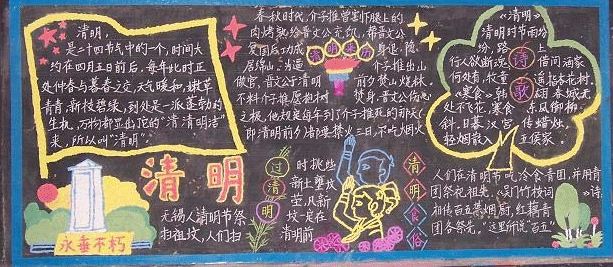 清明,
是二十四节气中的一个,时间大
约在四月五日前后,每年此时正
处仲春与暮春之交,天气暖和,嫩草
青青,新枝碧绿,到处是一派蓬勃的
生机,万物都显出陀的“清清明洁”
来,所以叫“清明”。
清明
永垂不朽
无锡人清明节祭
扫祖坟,人们扫
春秋时代,介子推曾割下腿上的
肉烤熟给晋文公充饥,帮晋文公
复国后功成身退,隐
居绵山。当逼介子推出山
做官,晋文公于清明前夕焚山烧林,
不料介子推愿抱树焚身。晋文公伤心
之极,他规定每年到了介子推死的那天(
即清明前夕)都要禁火三日,不吃烟火
清明来历
过清明
时挑些
新土壅坟
莹,凡新
坟一定在
清明前
清明食俗
《清明》
清明时节雨纷
纷,路上
行人欲断魂。借问酒家
何处有,牧童遥指杏花村。
《寒食》韩 春城无
处不飞花,寒食东风御柳
斜。日暮汉宫传蜡烛,
轻烟散入五侯家。
诗歌
人们在清明节吃冷食青团,并用青
团祭祀祖先。《吴门竹枝词》诗
相传百五禁烟厨,红藕青
团各祭先。”这里所说“百五